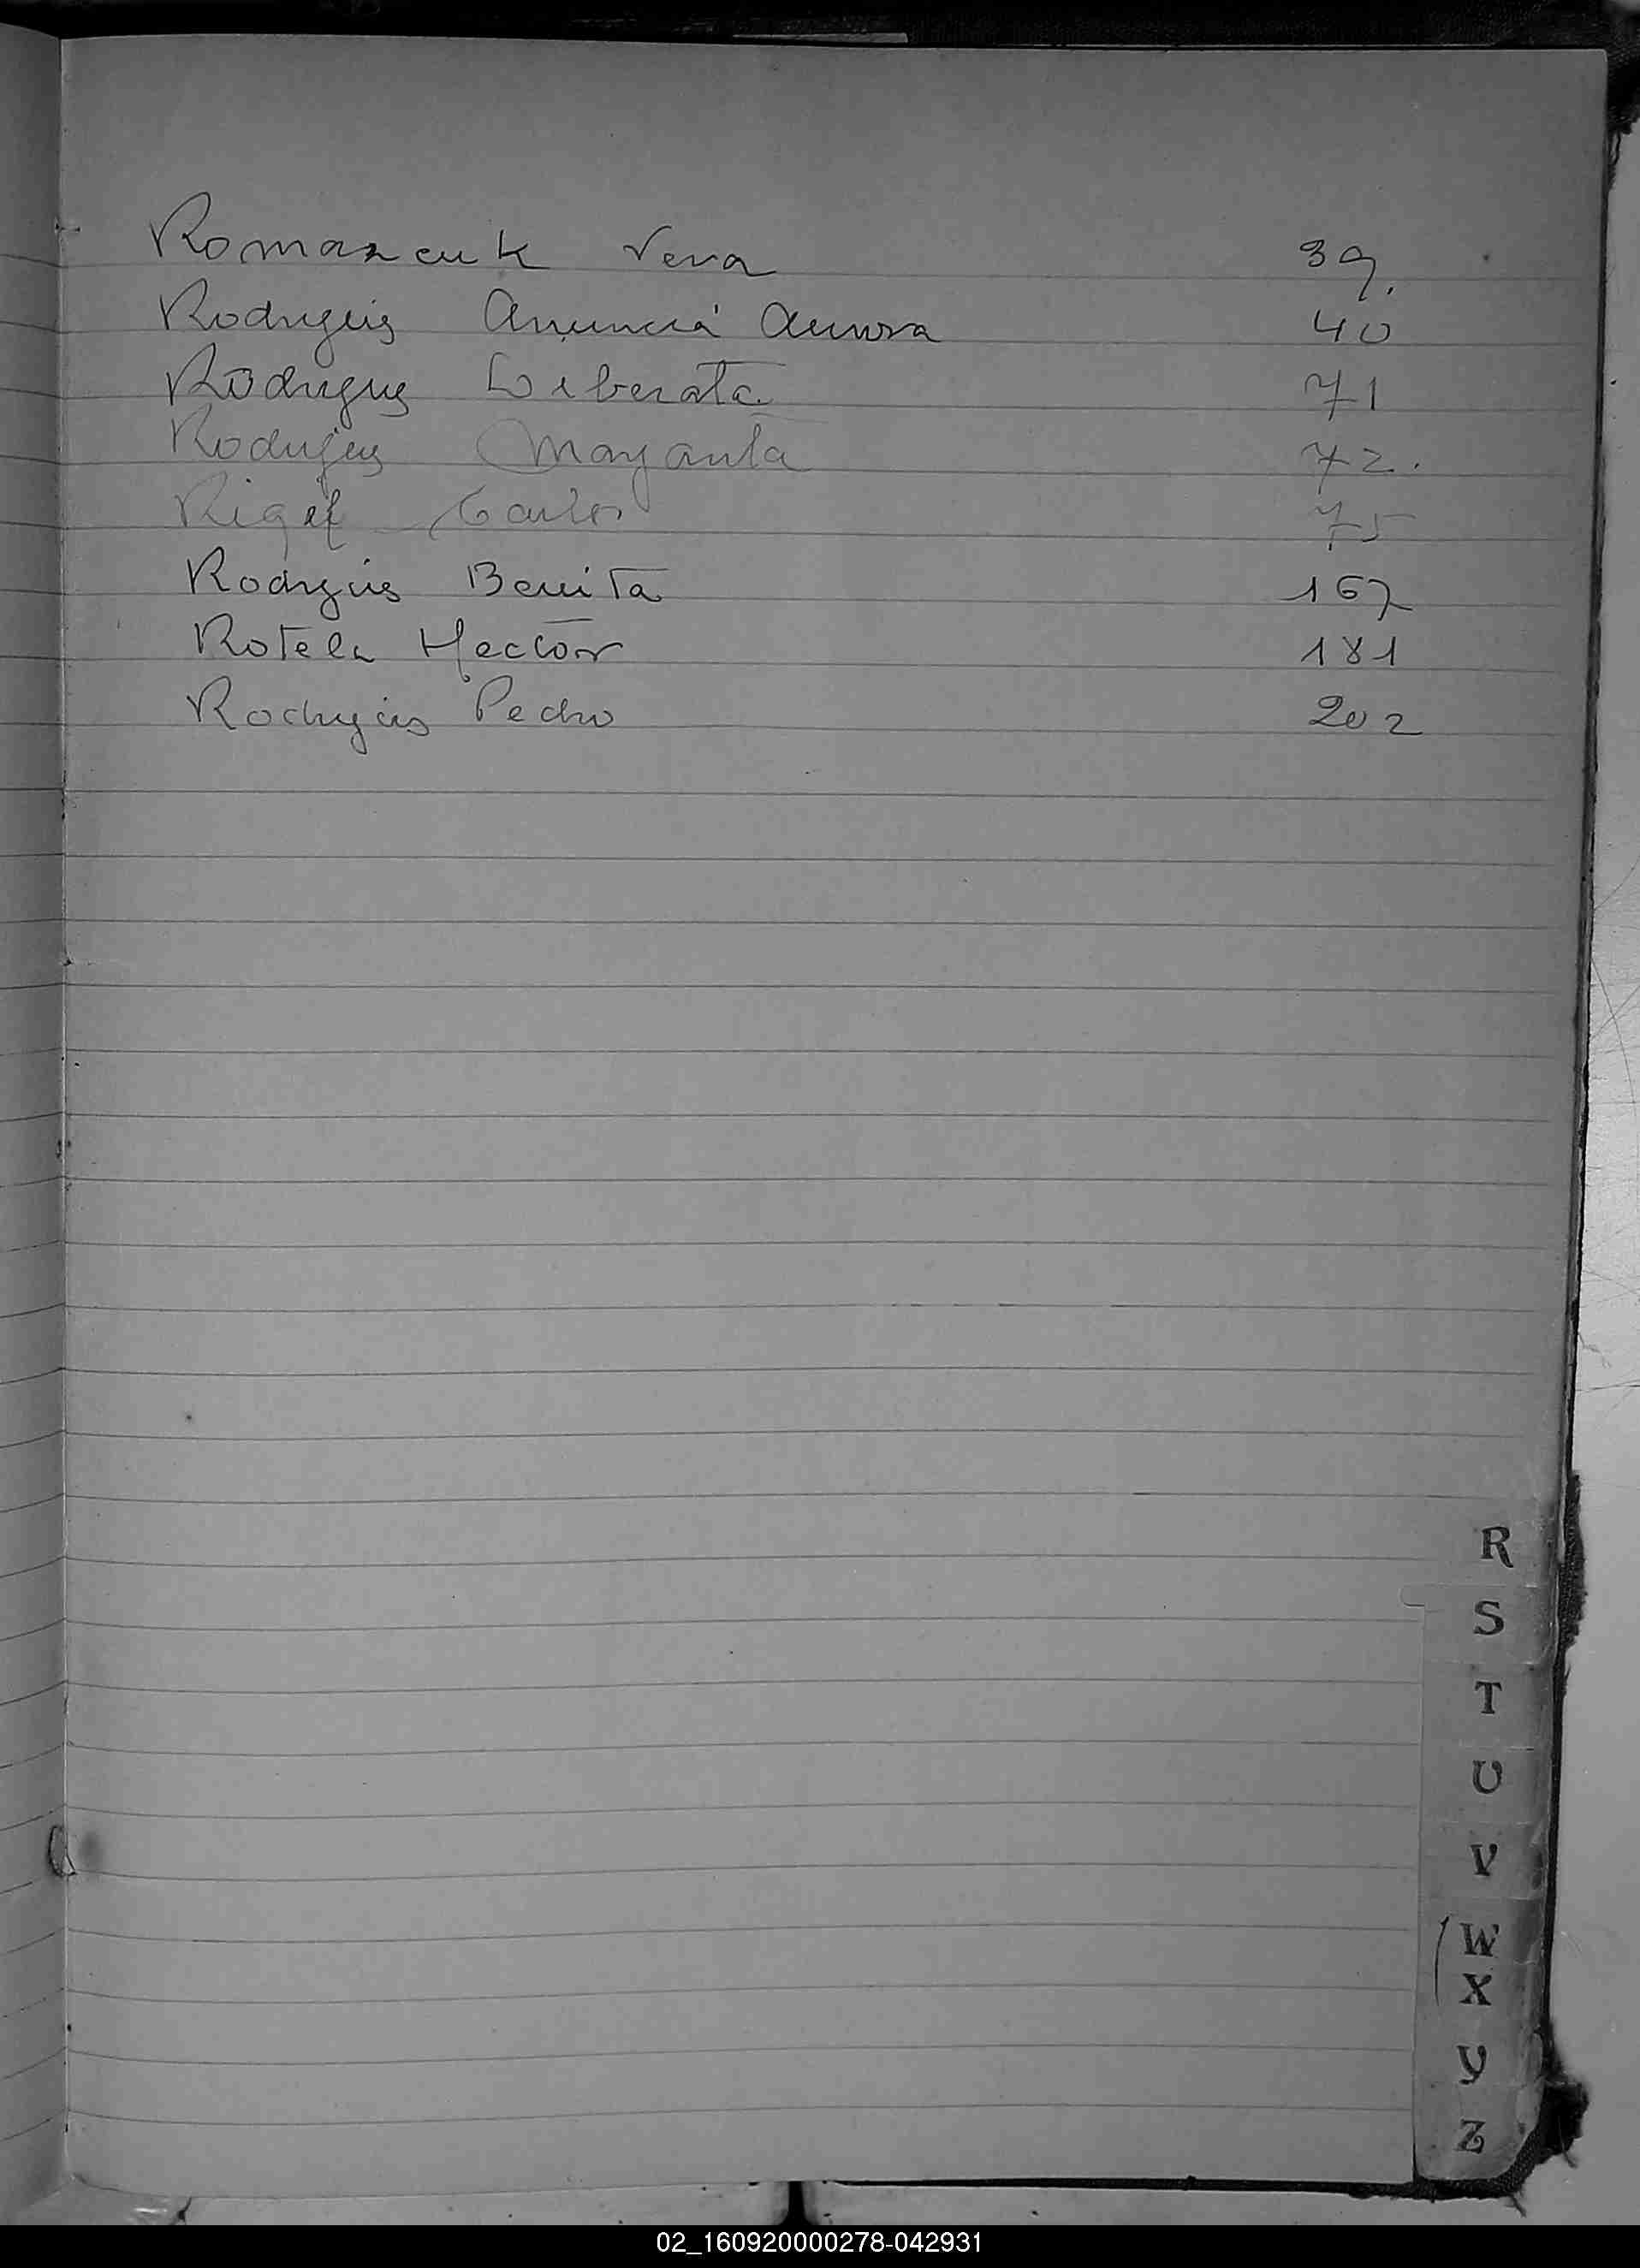 Romanzcuk Vera 39.
Rodrigues Anuncia Aurora 40
Rodrigues Liberata 71
Rodrigues Margarita 72.
Carlos 75
Rodrigues Benita 167
Rotela Hector 181
Rodrigues Pedro 202
R
S
T
U
V
W
X
Y
Z
02_160920000278-042931